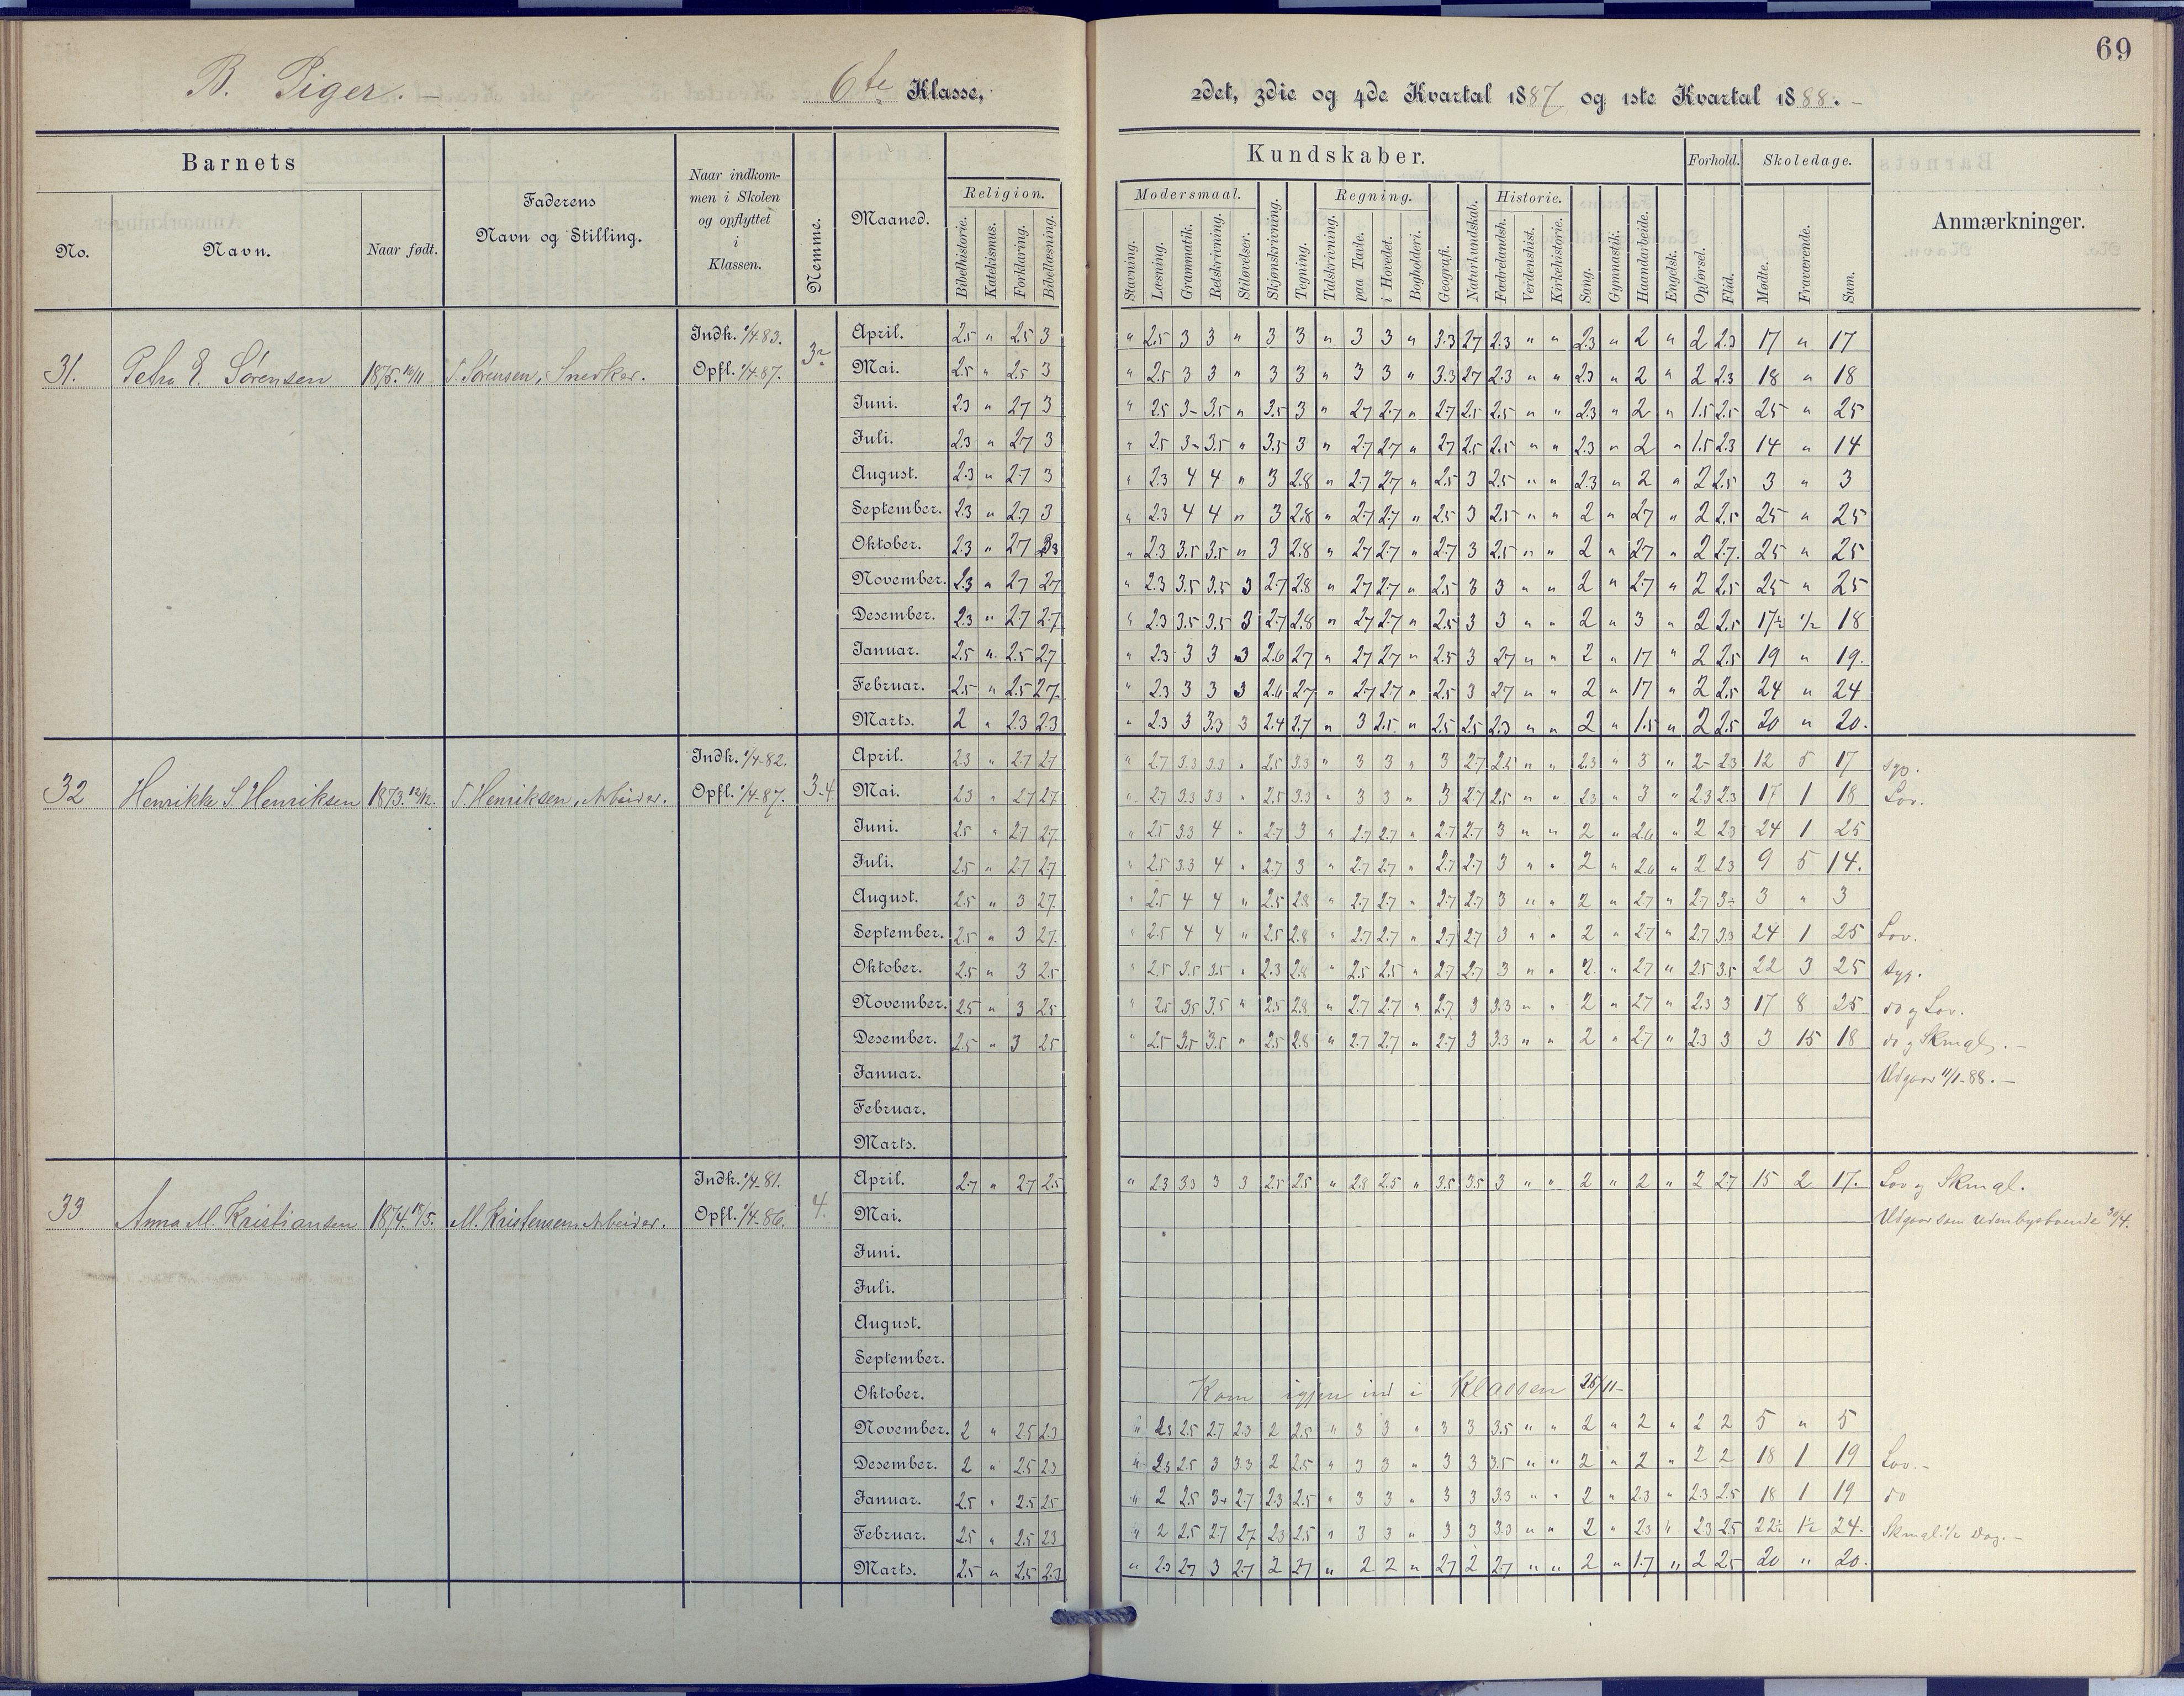 69
B. Piger. –
6te Klasse,
2det, 3die og 4de Kvartal 1887 og 1ste Kvartal 1888. –
Barnets
No.
Navn.
Naar født.
Faderens
Navn og Stilling.
Naar indkom-
men i Skolen
og opflyttet
i
Klassen.
Nemme.
Maaned.
Religion.
Bibelhistorie.
Katekismus.
Forklaring.
Bibellæsning.
Kundskaber.
Modersmaal.
Stavning.
Læsning.
Grammatik.
Retskrivning.
Stiløvelser.
Skjønskrivning.
Tegning.
Regning.
Talskrivning.
paa Tavle.
i Hovedet.
Bogholderi.
Geografi.
Naturkundskab.
Historie.
Fædrelandsh.
Verdenshist.
Kirkehistorie.
Sang.
Gymnastik.
Haandarbeide.
Engelsk.
Forhold.
Opførsel.
Flid.
Skoledage.
Mødte.
Fraværende.
Sum.
Anmærkninger.
31. Petra E. Sørensen 1875. 10/11 T. Sørensen, Snedker. Indk. 1/4 83. Opfl. 1/4 87.
April. 2.5 " 2.5 3 " 2.5 3 3 " 3 3 " 3 3 " 3.3 2.7 2.3 " " 2.3 " 2 " 2 2.3 17 " 17
Mai. 2.5 " 2.5 3 " 2.5 3 3 " 3 3 " 3 3 " 3.3 2.7 2.3 " " 2.3 " 2 " 2 2.3 18 " 18
Juni. 2.3 " 2.7 3 " 2.5 3- 3.5 " 3.5 3 " 2.7 2.7 " 2.7 2.5 2.5 " " 2.3 " 2 " 1.5 2.5 25 " 25
Juli. 2.3 " 2.7 3 " 2.5 3- 3.5 " 3.5 3 " 2.7 2.7 " 2.7 2.5 2.5 " " 2.3 " 2 " 1.5 2.3 14 " 14
August. 2.3 " 2.7 3 " 2.3 4 4 " 3 2.8 " 2.7 2.7 " 2.5 3 2.5 " " 2.3 " 2 " 2 2.5 3 " 3
September. 2.3 " 2.7 3 " 2.3 4 4 " 3 2.8 " 2.7 2.7 " 2.5 3 2.5 " " 2 " 2.7 " 2 2.5 25 " 25
Oktober. 2.3 " 2.7 " 2.3 3.5 3.5 " 3 2.8 " 2.7 2.7 " 2.7 3 2.5 " " 2 " 2.7 " 2 2.7 25 " 25
November. 2.3 " 2.7 2.7 " 2.3 3.5 3.5 3 2.7 2.8 " 2.7 2.7 " 2.5 3 3 " " 2 " 2.7 " 2 2.5 25 " 25
Desember. 2.3 " 2.7 2.7 " 2.3 3.5 3.5 3 2.7 2.8 " 2.7 2.7 " 2.5 3 3 " " 2 " 3 " 2 2.5 17½ ½ 18
Januar. 2.5 " 2.5 2.7 " 2.3 3 3 3 2.6 2.7 " 2.7 2.7 " 2.5 3 2.7 " " 2 " 1.7 " 2 2.5 19 " 19.
Februar. 2.5 " 2.5 2.7 " 2.3 3 3 3 2.6 2.7 " 2.7 2.7 " 2.5 3 2.7 " " 2 " 1.7 " 2 2.5 24 " 24
Marts. 2 " 2.3 2.3 " 2.3 3 3.3 3 2.4 2.7 " 3 2.5 " 2.5 2.5 2.3 " " 2 " 1.5 " 2 2.5 20 " 20.
32 Henrikke S. Henriksen 1873. 12/12. T. Henriksen, Arbeider. Indk. 1/4-82. Opfl. 1/4-87. 3.4
April. 2.3 " 2.7 2.7 " 2.7 3.3 3.3 " 2.5 3.3 " 3 3 " 3 2.7 2.5 " " 2.3 " 3 " 2- 2.3 12 5 17 syg.
Mai. 2.3 " 2.7 2.7 " 2.7 3.3 3.3 " 2.5 3.3 " 3 3 " 3 2.7 2.5 " " 2.3 " 3 " 2.3 2.3 17 1 18 Lov.
Juni. 2.5 " 2.7 2.7 " 2.5 3.3 4 " 2.7 3 " 2.7 2.7 " 2.7 2.7 3 " " 2 " 2.6 " 2 2.3 24 1 25
Juli. 2.5 " 2.7 2.7 " 2.5 3.3 4 " 2.7 3 " 2.7 2.7 " 2.7 2.7 3 " " 2 " 2.6 " 2 2.3 9 5 14.
August. 2.5 " 3 2.7 " 2.5 4 4 " 2.5 2.8 " 2.7 2.7 " 2.7 2.7 3 " " 2 " 2.7 " 2.7 3- 3 " 3
September. 2.5 " 3 2.7 " 2.5 4 4 " 2.5 2.8 " 2.7 2.7 " 2.7 2.7 3 " " 2 " 2.7 " 2.7 3.3 24 1 25 Lov.
Oktober. 2.5 " 3 2.5 " 2.5 3.5 3.5 " 2.3 2.8 " 2.5 2.5 " 2.7 2.7 3 " " 2 " 2.7 " 2.5 3.5 22 3 25 syg.
November. 2.5 " 3 2.5 " 2.5 3.5 3.5 " 2.5 2.8 " 2.7 2.7 " 2.7 3 3.3 " " 2 " 2.7 " 2.3 3 17 8 25 do og Lov.
Desember. 2.5 " 3 2.5 " 2.5 3.5 3.5 " 2.5 2.8 " 2.7 2.7 " 2.7 3 3.3 " " 2 " 2.7 " 2.3 3 3 15 18 do og Skmgl. –
Januar. Udgaar 11/1-88. –
Februar.
Marts.
33 Anna M. Kristiansen 1874. 18/5. M. Kristensen, Arbeider. Indk. 1/4-81. Opfl. 1/4-86. 4.
April. 2.7 " 2.7 2.5 " 2.3 3.3 3 3 2.5 2.5 " 2.8 2.5 " 3.5 3.5 3 " " 2 " 2 " 2 2.7 15 2 17. Lov og Skmgl.
Mai. Udgaar som udenbysboende 30/4.
Juni.
Juli.
August.
September.
Oktober. Kom igjen ind i Klassen 25/11–
November. 2 " 2.5 2.3 " 2.3 2.5 2.7 2.3 2 2.5 " 3 3 " 3 3 3.5 " " 2 " 2 " 2 2 5 " 5
Desember. 2 " 2.5 2.3 " 2.3 2.5 3 3.3 2 2.5 " 3 3 " 3 3 3.5 " " 2 " 2 " 2 2 18 1 19 Lov. –
Januar. 2.5 " 2.5 2.5 " 2 2.5 3+ 2.7 2.3 2.5 " 3 3 " 3 3 3.3 " " 2 " 2.3 " 2.3 2.5 18 1 19 do
Februar. 2.5 " 2.5 2.3 " 2 2.5 2.7 2.7 2.3 2.5 " 3 3 " 3 3 3.3 " " 2 " 2.3 " 2.3 2.5 22½ 1½ 24. Skmgl. ½ Dag. –
Marts. 2.5 " 2.5 2.3 " 2.3 2.7 3 2.7 2 2.7 " 2 2 " 2.7 2 2.7 " " 2 " 1.7 " 2 2.5 20 " 20.